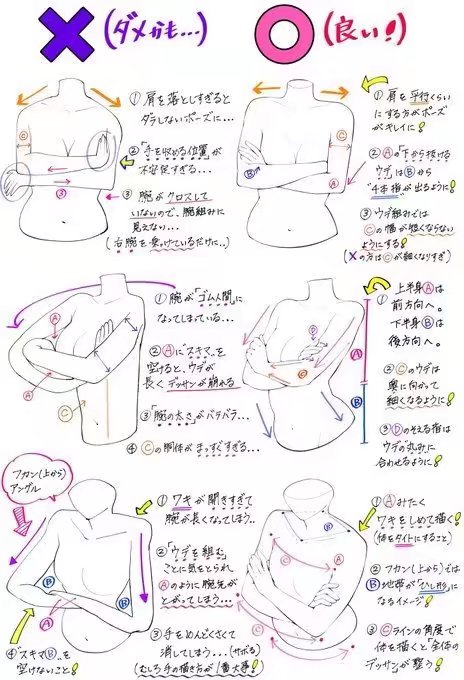 (ダメかも…)
(良い!)
① 肩を落としすぎると
ダラしないポーズに…
②「手を収める位置」が
不安定すぎる…
③ 腕がクロスして
いないので、腕組みに
見えない…
(右腕を乗っけているだけに…)
C
C
③
① 肩を平行くらい
にする方がポーズ
がキレイに!
② Aの「下から抜ける
ウデ」はBから
"4本指"が出るように!
③ ウデ組みでは
Cの幅が短くならない
ようにする!
(Xの方はCが細くなりすぎ)
C
B
A
① 腕が「ゴム人間」に
なってしまっている…
② Aに"スキマ"を
空けると、ウデが
長くデッサンが崩れる
③「腕の太さ」がバラバラ…
④ Cの胴体がまっすぐすぎる…
A
A
C
① 上半身Aは
前方向へ。
下半身Bは
後方向へ。
② Cのウデは
奥に向かって
細くなるように!
③ Dのそえる指は
ウデの丸みに
合わせるように!
D
C
A
B
フカン(上から)
アングル
① ワキが開きすぎて
腕が長くなってしまう…
②「ウデを組む」
ことに気をとられ
Aのように腕先が
とがってしまう…
③ 手をめんどくさくて
消してしまう…(サボる)
(むしろ手の描き方が1番大事!)
④"スキマB"を
空けないこと!
B
B
A
① Aみたく
ワキをしめて描く!
(体をタイトにすること)
② フカン(上から)では
B地帯が「ひし形」に
なるイメージ!
③ Cラインの角度で
体を描くと「全体の
デッサンが整う!
B
C
A
A
C